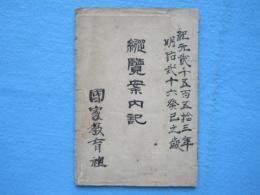 紀元貳千五百五拾三年
明治貳十六癸巳之歳
縦覽案内記
國家教育社